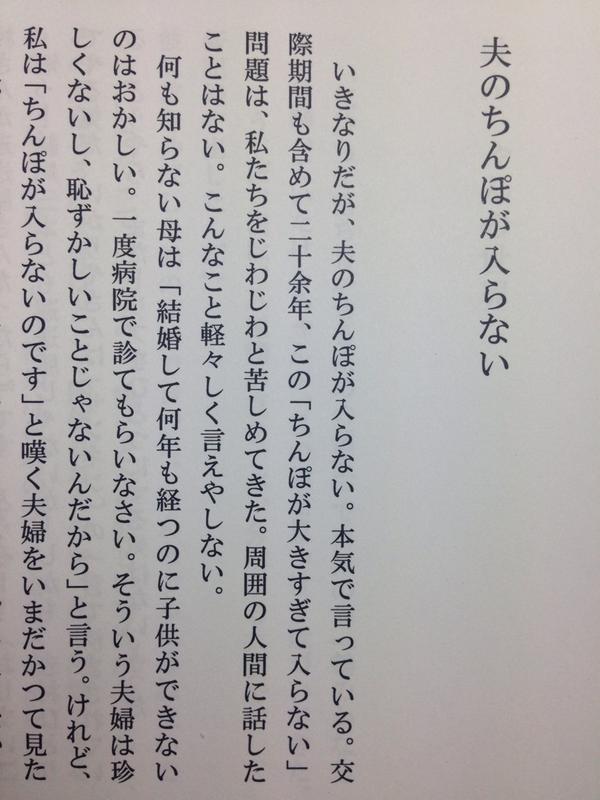 夫のちんぽが入らない
いきなりだが、夫のちんぽが入らない。本気で言っている。交
際期間も含めて二十余年、この「ちんぽが大きすぎて入らない」
問題は、私たちをじわじわと苦しめてきた。周囲の人間に話した
ことはない。こんなこと軽々しく言えやしない。
何も知らない母は「結婚して何年も経つのに子供ができない
のはおかしい。一度病院で診てもらいなさい。そういう夫婦は珍
しくないし、恥ずかしいことじゃないんだから」と言う。けれど、
私は「ちんぽが入らないのです」と嘆く夫婦をいまだかつて見た